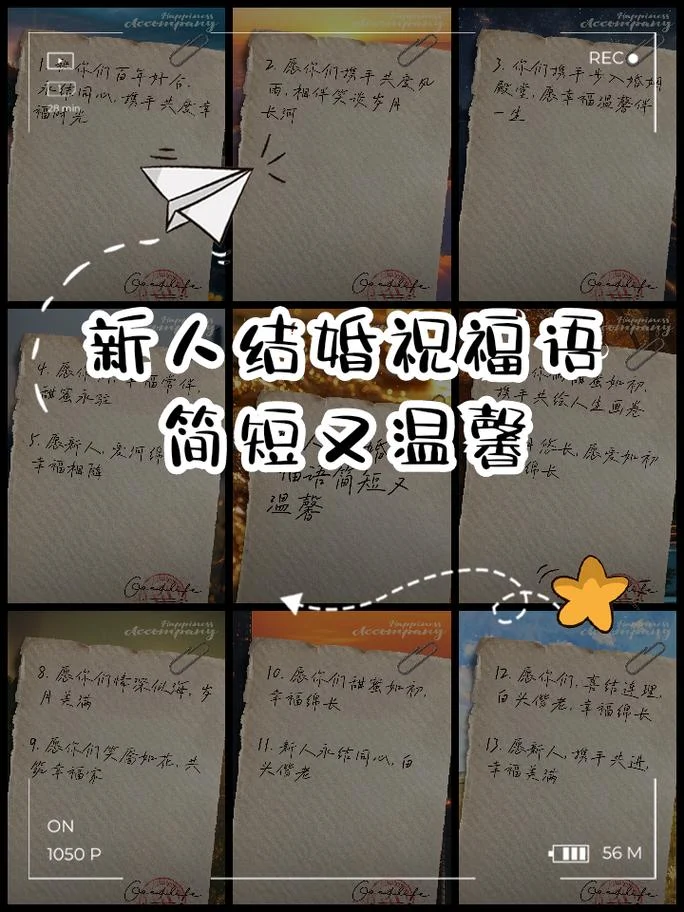 Happiness
Accompany
1. 祝你们百年好合,
永结同心,携手共度幸
福时光
28 min
Goodlife
Happiness
Accompany
2. 愿你们携手共度风
雨,相伴笑谈岁月
长河
Goodlife
Happiness
Accompany
REC
3. 你们携手步入婚姻
殿堂,愿幸福温馨伴
一生
Goodlife
新人结婚祝福语
简短又温馨
4. 愿你 幸福常伴,
甜蜜永驻
5. 愿新人,爱河绵
幸福相随
Goodlife
婚
福语简短又
温馨
甜蜜如初,
携手共绘人生画卷
悠长,愿爱如初
绵长
Happiness
Accompany
8. 愿你们情深似海,岁
月美满
9. 愿你们笑靥如花,共
筑幸福家
Goodlife
ON
1050 P
Happiness
Accompany
10. 愿你们甜蜜如初,
幸福绵长
11. 新人永结同心,白
头偕老
Goodlife
Happiness
Accompany
12. 愿你们,喜结连理,
白头偕老,幸福绵长
13. 愿新人,携手共进,
幸福美满
56 M
Goodlife